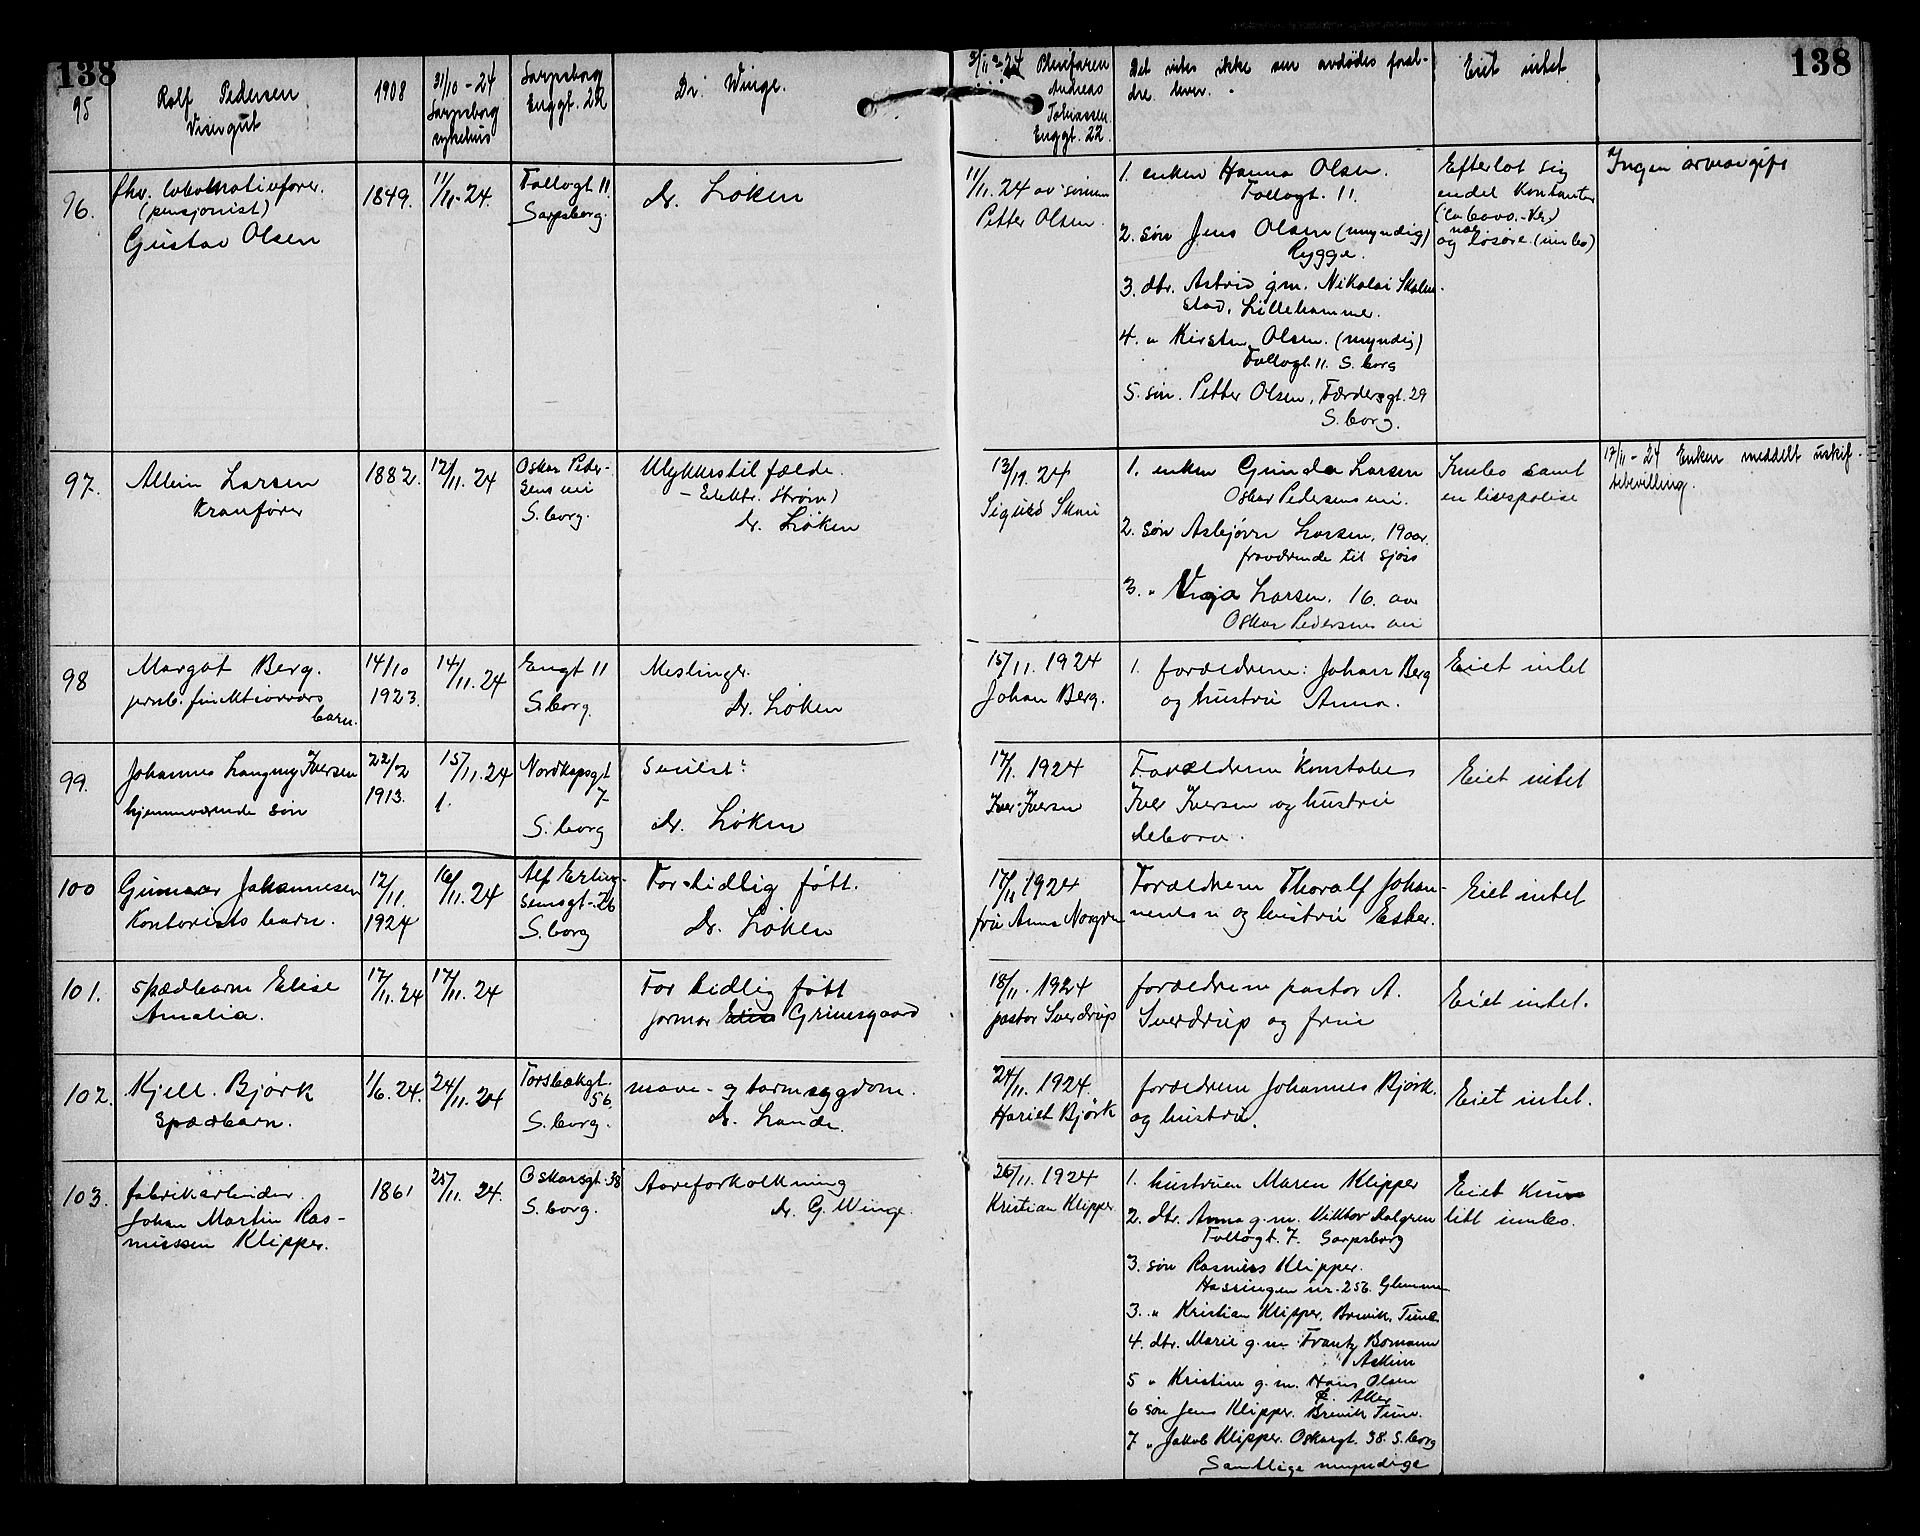 138
138
95
Rolf Pedersen
Visergut
1908
31/10-24
Sarpsborg
sykehus
Sarpsborg
Enggt. 22
Dr. Winge.
3/11-24 Pleiefaren
Andreas
Tobiassen
Enggt. 22
Det vites ikke om avdødes foræl-
dre lever.
Eiet intet
96.
fhv. lokomotivfører.
(pensjonist)
Gustav Olsen
1849.
11/11-24.
Follogt 11
Sarpsborg.
Dr. Løken
11/11. 24 av sønnen
Petter Olsen.
1. enken Hanna Olsen.
Follogt. 11.
2. søn Jens Olsen (myndig)
Rygge.
3. dtr. Astrid g.m. Nikolai
stad, Lillehammer.
4. " Kirsten Olsen. (myndig)
Follogt. 11. S.borg
5. søn. Petter Olsen, Færdersgt. 29
S.borg.
Efterlot sig
endel kontanter
(ca 6000.- kr.)
og løsøre. (innbo)
Ingen arveavgift
97.
Larsen
Kranfører
1882.
12/11. 24
Oskar Peder-
sens vei
S.borg.
Ulykkestilfælde.
- Elektr. Strøm)
dr. Løken
13/11. 24
Sigurd
1. enken Gunda Larsen
Oskar Pedersens vei.
2. søn Asbjørn Larsen, 19 aar.
fraværende til sjøss
3. " Larsen. 16. aar
Oskar Pedersens vei
Innbo samt
en livspolise
17/11-24 Enken meddelt uskif-
tebevilling.
98
Margot Berg.
jernb. funktionærs
barn.
14/10
1923.
14/11. 24
Engt 11
S.borg.
Meslinger.
Dr. Løken
15/11. 1924
Johan Berg.
1. forældrene: Johan Berg
og hustru Anna.
Eiet intet
99.
Johannes Iversen
hjemmeværende søn
22/2
1913.
15/11. 24
Nordkapsgt
7
S.borg
Svulst
dr. Løken
17/11. 1924
Iver Iversen
Forældrene konstabel
Iver Iversen og hustru
debora.
Eiet intet
100
Gunnar Johannesen
Kontorists barn.
12/11.
1924
16/11. 24
Alf Erling-
sensgt. 26
S.borg
For tidlig født.
Dr. Løken
17/11 1924
fru Anna Norgren
Forældrene Thoralf Johan-
nessen og hustru Ester.
Eiet intet
101.
Spædbarn Elise
Amalia.
17/11. 24
17/11. 24
For tidlig født
jormor Grimsgaard
18/11. 1924
pastor Sverdrup
forældrene pastor A.
Sverdrup og frue
Eiet intet.
102.
Kjell. Bjørk
Spædbarn.
1/6. 24.
24/11. 24
Torsbækgt.
56.
S.borg.
mave- og tarmsygdom.
Dr. Lande.
24/11. 1924.
Hariet Bjørk
forældrene Johannes Bjørk.
og hustru.
Eiet intet.
103.
fabrikarbeider.
Johan Martin Ras-
mussen Klipper.
1861
25/11. 24.
Oskarsgt. 38
S.borg.
Aareforkalkning
dr. G. Winge.
26/11. 1924
Kristian Klipper
1. hustruen Maren Klipper
2. dtr. Anna g.m. Viktor Dalgren
Follogt. 7. Sarpsborg
3. søn Rasmus Klipper.
Hassingen nr. 256. Glemmen
3. " Kristian Klipper, Brevik, Tune
4. dtr. Marie g.m. Frantz Bomann
Askim
5 " Kristine g.m. Hans Olsen
6 søn Jens Klipper. Brevik Tune.
7 " Jakob Klipper. Oskargt. 38. S.borg
Samtlige myndige
Eiet kun
litt innbo.